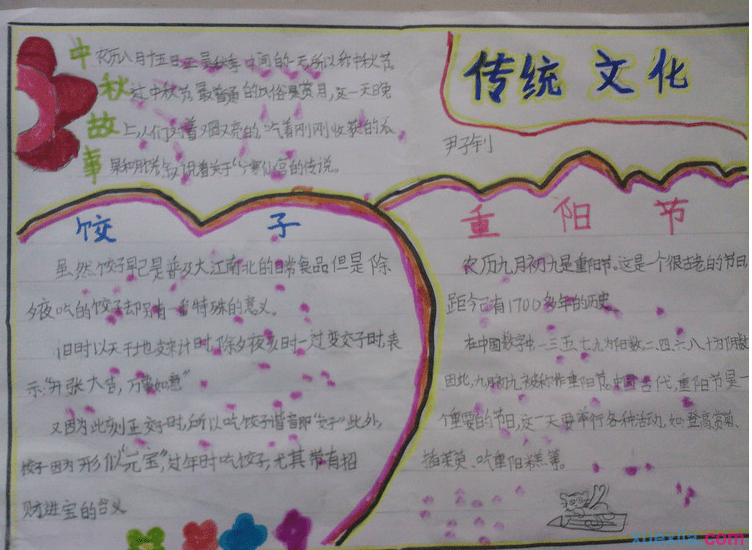 传统 文化
中秋故事
农历八月十五日正是秋季中间的一天所以称中秋节
过中秋节最普通的风俗是赏月,这一天晚
上,人们对着又圆又亮的 吃着刚刚收获的水
果和月饼
说着关于"广寒仙宫的传说。
饺 子
虽然饺子早已是普及大江南北的日常食品但是除
夕夜吃的饺子却另有一番特殊的意义。
旧时以天干地支来计时,除夕夜亥时一过变交子时,表
示"开张大吉,万事如意"
又因为此刻正交子时,所以吃饺子谐音即"交子"此外,
饺子因为形似"元宝",过年时吃饺子,尤其带有招
财进宝的含义
重 阳 节
农历九月初九是重阳节。这是一个很古老的节日
距今已有1700多年的历史。
在中国数字中一三五七九为阳数二四六八十为阴数
因此,九月初九被称作重阳节。中国古代,重阳节是一
个重要的节日,这一天要举行各种活动,如登高赏菊、
插茱萸、吃重阳糕等。
xuexila.com